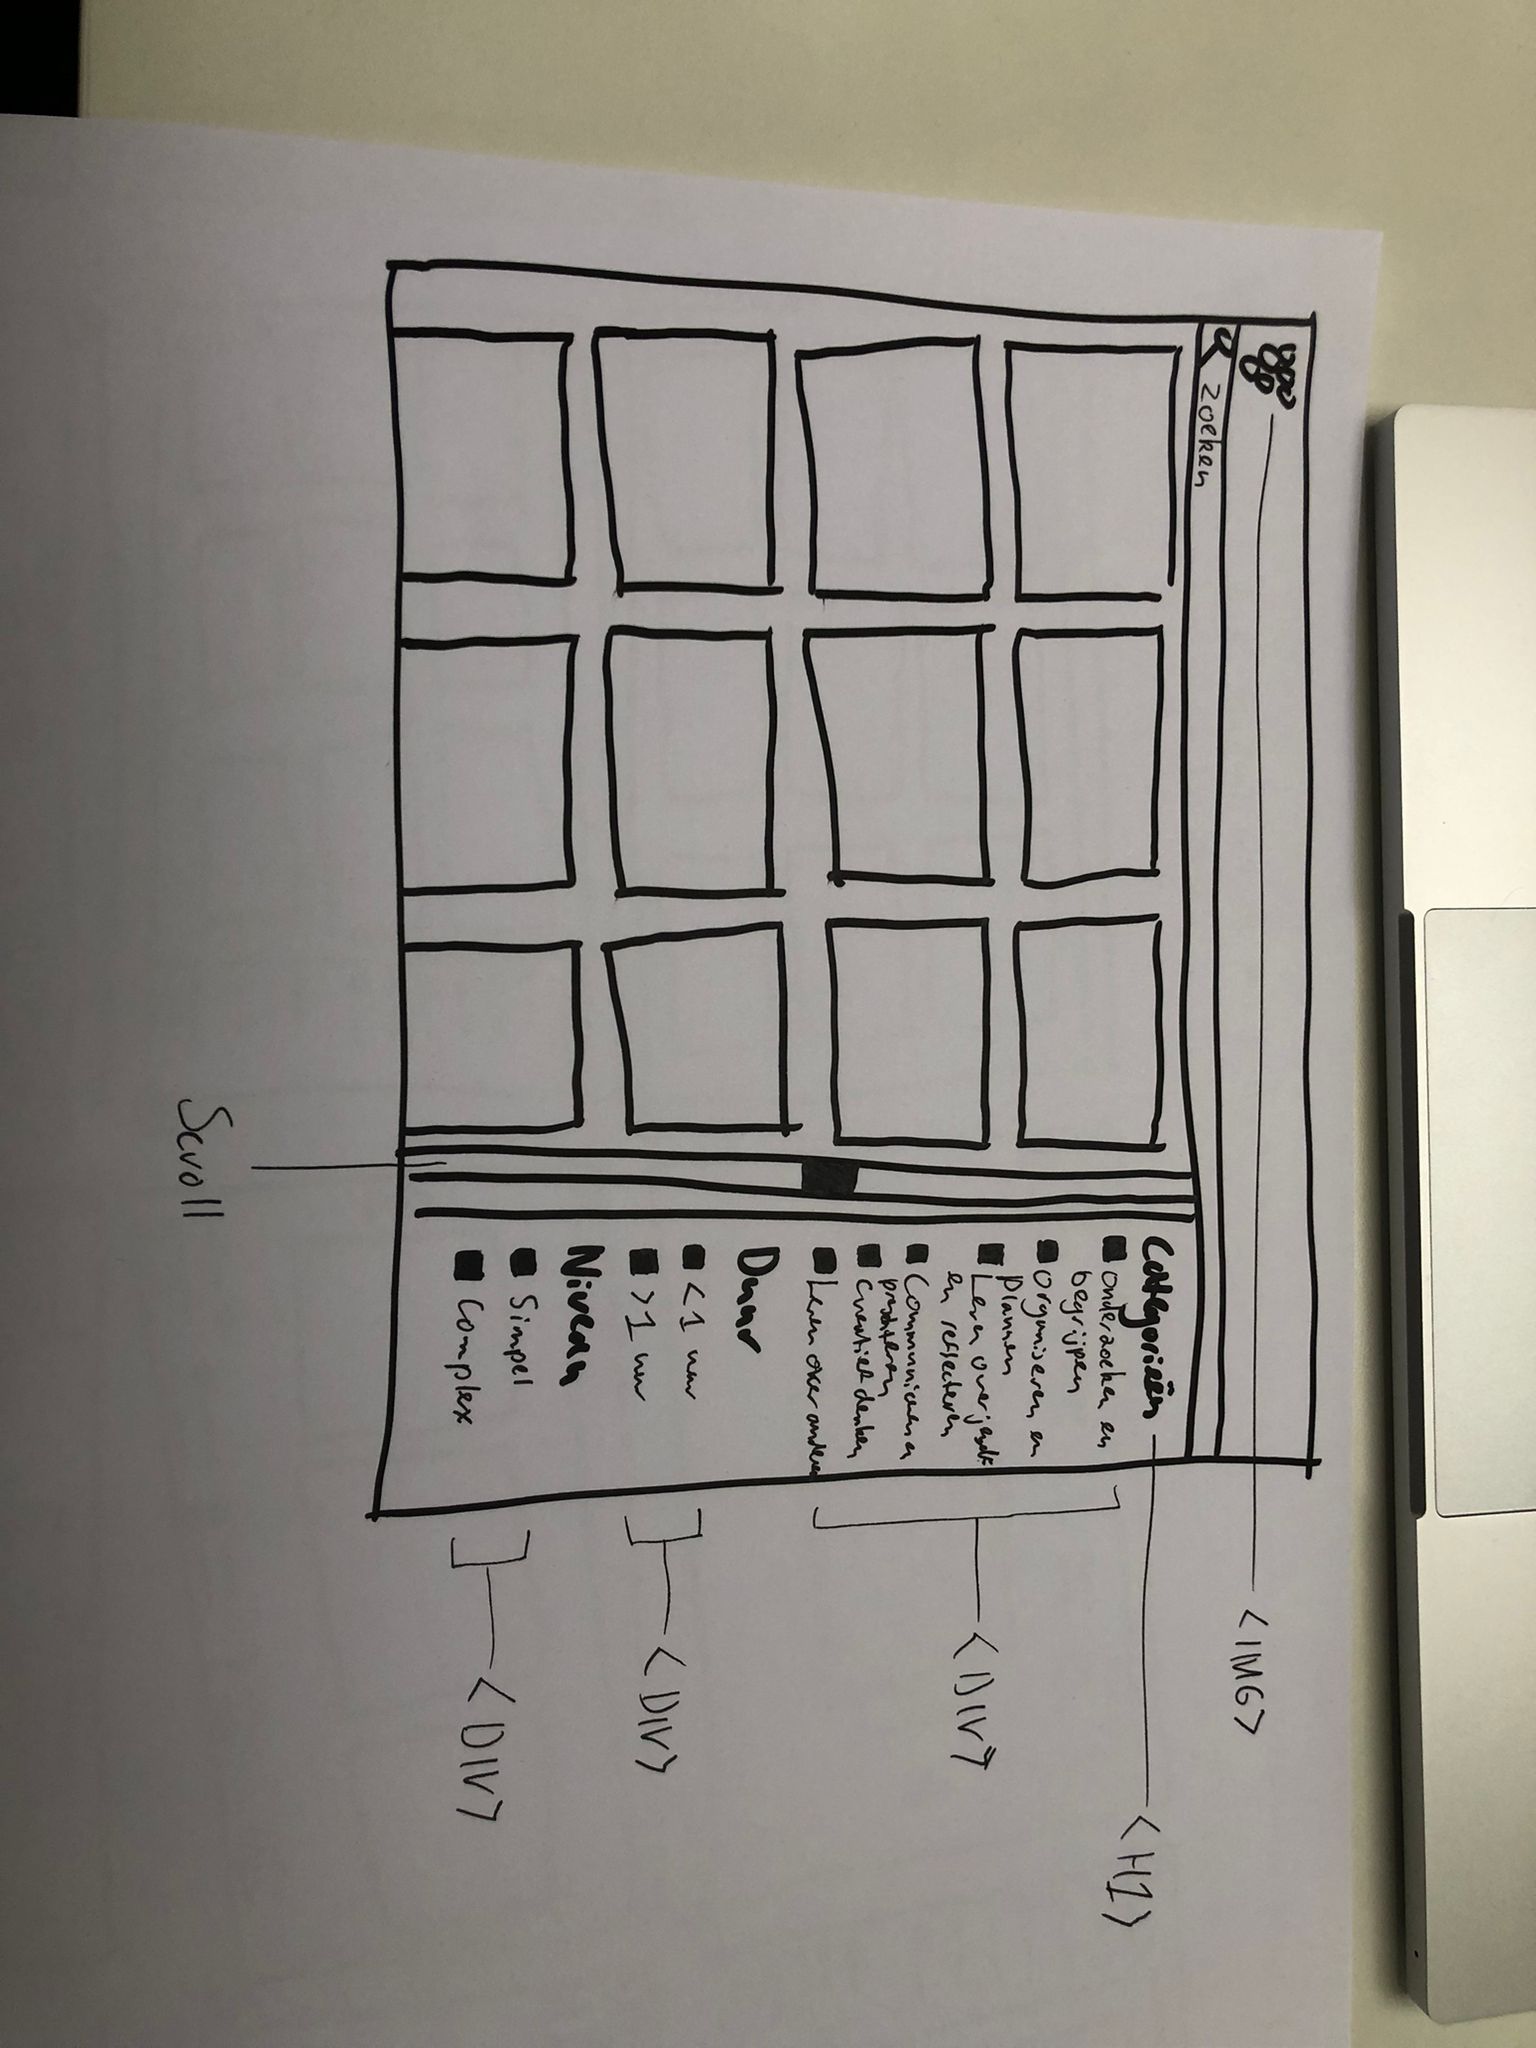 Zoeken
Categorieën
onderzoeken en
begrijpen
organiseren en
Plannen
Leren over jezelf
en reflecteren
Communiceren en
Creatief denken
Leren over anderen
Duur
<1 uur
>1 uur
Niveau
Simpel
Complex
<IMG>
<H1>
<DIV>
<DIV>
<DIV>
Scroll